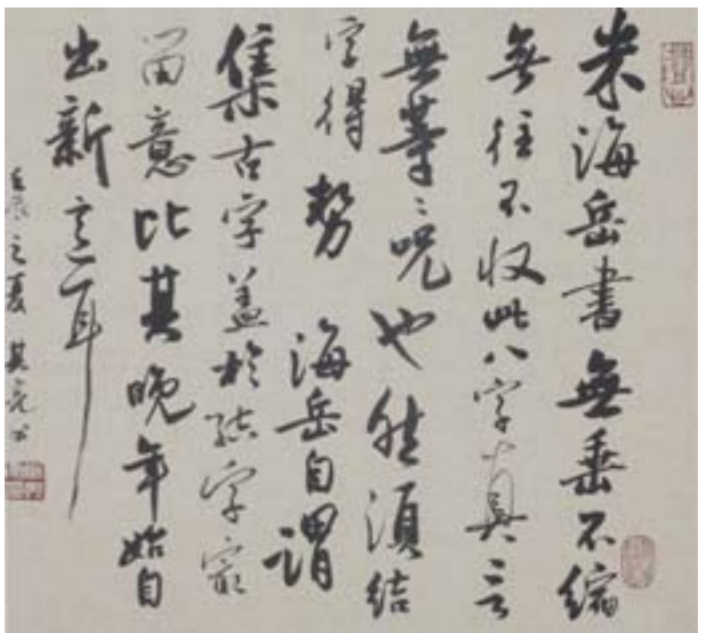 米海岳書無垂不縮
無往不收此八字真言
無等等咒也然須結
字得勢海岳自謂
集古字蓋於結字最
留意比其晚年始自
出新意耳
壬辰之夏其亮书